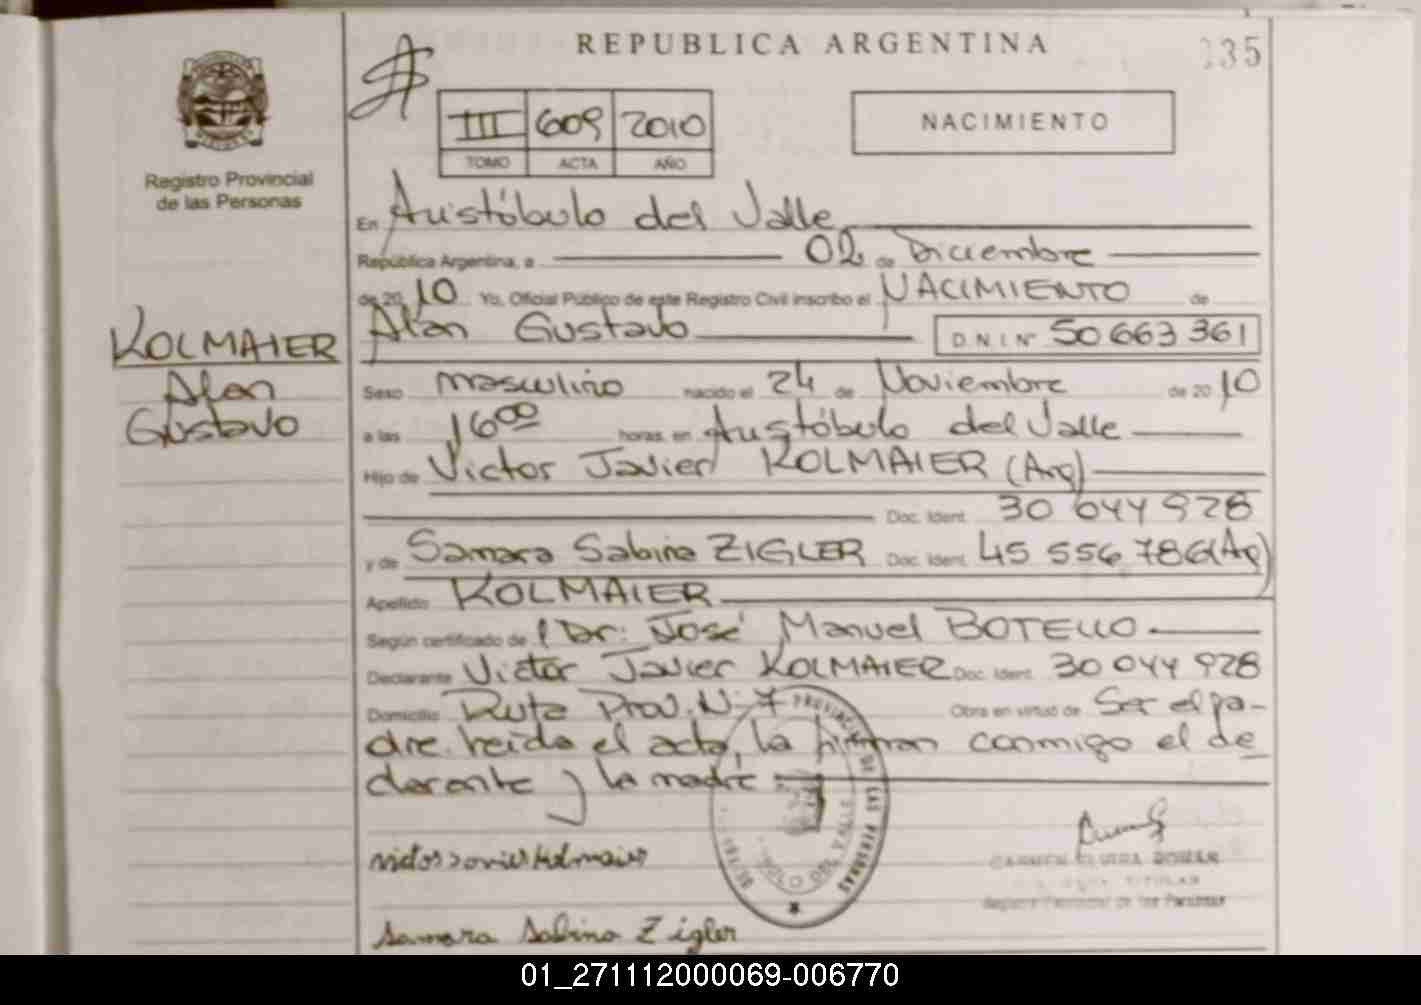 REPUBLICA ARGENTINA
135
Registro Provincial
de las Personas
III 609 2010
TOMO ACTA AÑO
NACIMIENTO
En Aristóbulo del Valle
República Argentina, a 02 de Diciembre
de 2010 Yo, Oficial Público de este Registro Civil inscribo el NACIMIENTO de
Alan Gustavo D.N.I.Nº 50 663 361
KOLMAIER
Alan
Gustavo
Sexo masculino nacido el 24 de Noviembre de 2010
a las 16 00 horas. en Aristóbulo del Valle
Hijo de Victor Javier KOLMAIER (Arg)
Doc. Ident. 30 044 928
y de Samara Sabina ZIGLER Doc. Ident. 45 556 786 (Arg)
Apellido KOLMAIER
Según certificado de Dr: José Manuel BOTELLO
Declarante Victor Javier KOLMAIER Doc. Ident. 30 044 928
Domicilio Ruta Prov. Nº 7 Obra en virtud de Ser el pa-
dre. Leida el acta, la firman conmigo el de
clarante y la madre
PROVINCIAL DE LAS PERSONAS
DEL VALLE
victor Javier Kolmaier
CARMEN ELVIRA
TITULAR
Registro Provincial de las Personas
Samara Sabina Zigler
01_271112000069-006770